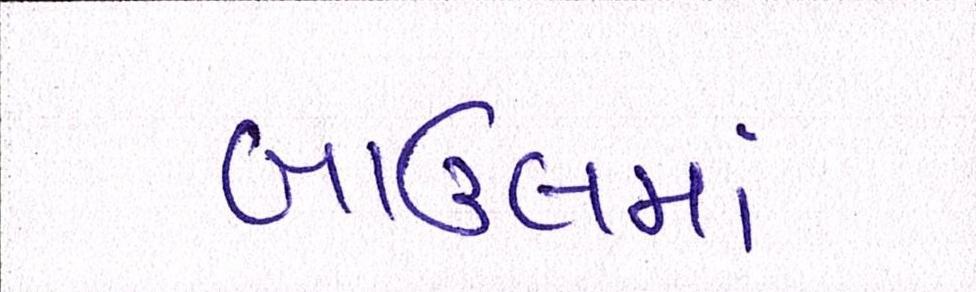 બાઉલમાં